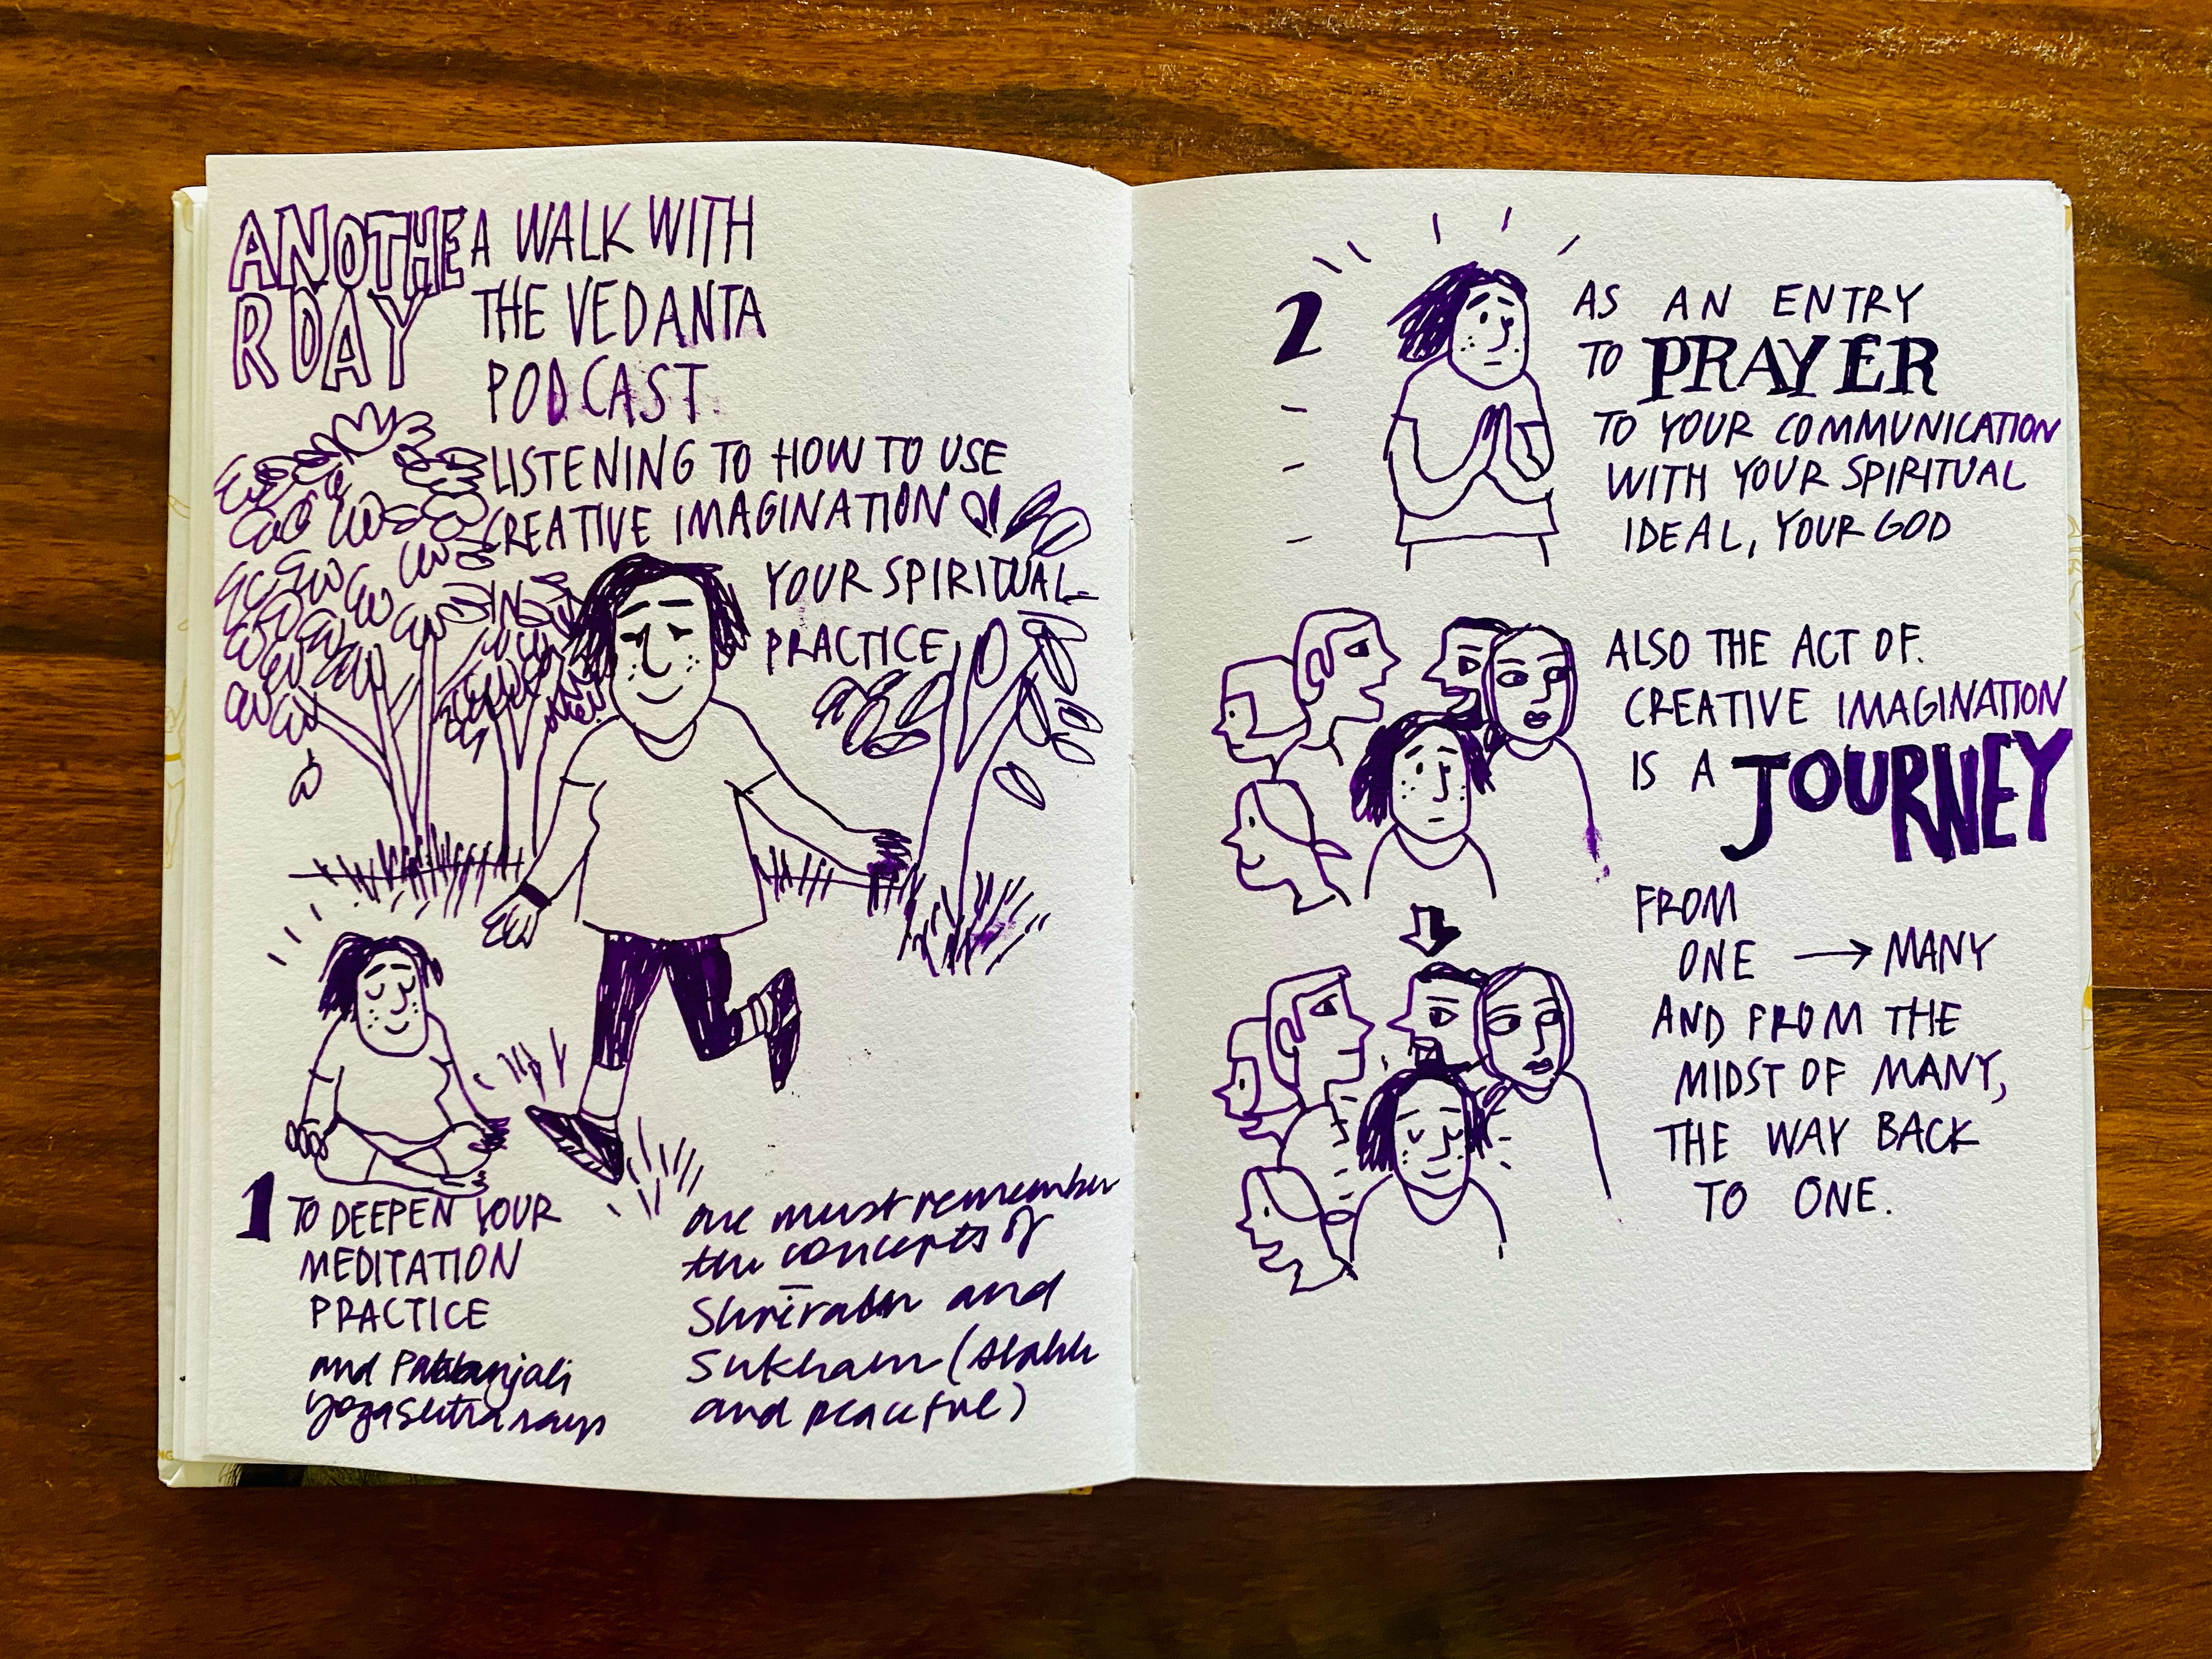 ANOTHE
R DAY
A WALK WITH
THE VEDANTA
PODCAST.
LISTENING TO HOW TO USE
CREATIVE IMAGINATION
IN
YOUR SPIRITUAL
PRACTICE
1 TO DEEPEN YOUR
MEDITATION
PRACTICE
and Patanjali
yogasutra says
one must remember
the concepts of
and
Sukham (stable
and peaceful)
2
AS AN ENTRY
TO PRAYER
TO YOUR COMMUNICATION
WITH YOUR SPIRITUAL
IDEAL, YOUR GOD
ALSO THE ACT OF.
CREATIVE IMAGINATION
IS A JOURNEY
FROM
ONE → MANY
AND FROM THE
MIDST OF MANY,
THE WAY BACK
TO ONE.